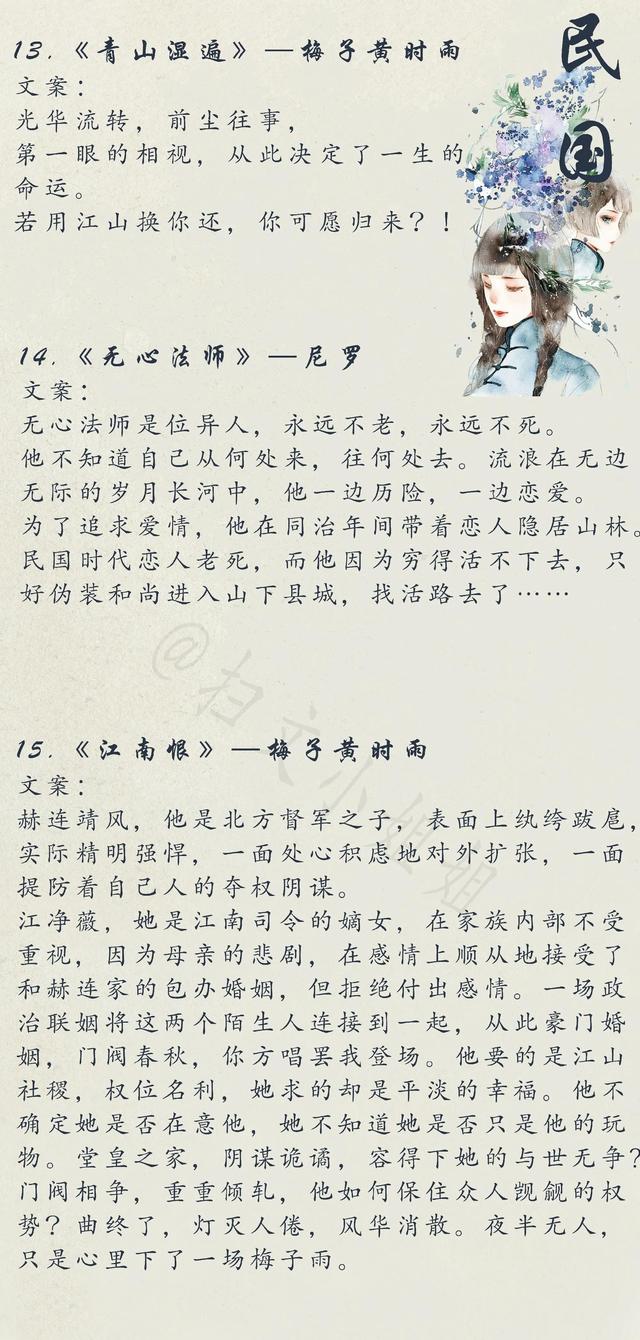 民国
13.《青山湿遍》—梅子黄时雨
文案：
光华流转，前尘往事，
第一眼的相视，从此决定了一生的
命运。
若用江山换你还，你可愿归来？！
14.《无心法师》—尼罗
文案：
无心法师是位异人，永远不老，永远不死。
他不知道自己从何处来，往何处去。流浪在无边
无际的岁月长河中，他一边历险，一边恋爱。
为了追求爱情，他在同治年间带着恋人隐居山林。
民国时代恋人老死，而他因为穷得活不下去，只
好伪装和尚进入山下县城，找活路去了……
@扫文小姐姐
15.《江南恨》—梅子黄时雨
文案：
赫连靖风，他是北方督军之子，表面上纨绔跋扈，
实际精明强悍，一面处心积虑地对外扩张，一面
提防着自己人的夺权阴谋。
江净薇，她是江南司令的嫡女，在家族内部不受
重视，因为母亲的悲剧，在感情上顺从地接受了
和赫连家的包办婚姻，但拒绝付出感情。一场政
治联姻将这两个陌生人连接到一起，从此豪门婚
姻，门阀春秋，你方唱罢我登场。他要的是江山
社稷，权位名利，她求的却是平淡的幸福。他不
确定她是否在意他，她不知道她是否只是他的玩
物。堂皇之家，阴谋诡谲，容得下她的与世无争？
门阀相争，重重倾轧，他如何保住众人觊觎的权
势？曲终了，灯灭人倦，风华消散。夜半无人，
只是心里下了一场梅子雨。